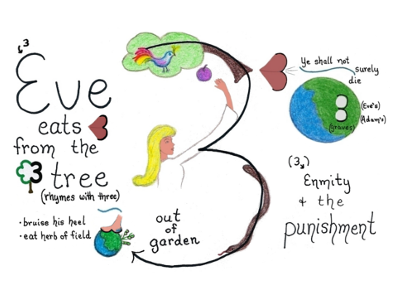 3
Eve
eats
from the
tree
(rhymes with three)
• bruise his heel
• eat herb of field
out
of
garden
Ye shall not
surely
die
(Eve's)
(Adam's)
(Graves)
(3)
Enmity
+ the
punishment